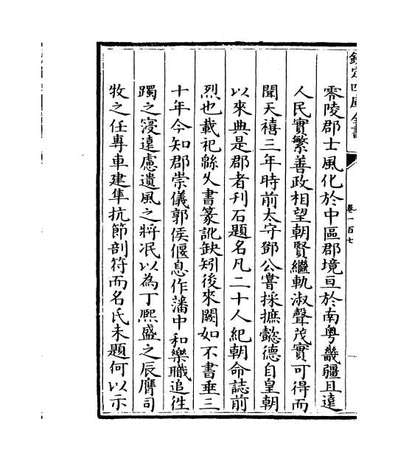 零陵郡士風化於中區郡境亘於南粤畿疆且遠
人民實繁善政相望朝賢繼軌淑聲茂實可得而
聞天禧三年時前太守鄧公嘗採摭懿德自皇朝
以來典是郡者刋石題名凡二十人紀朝命誌前
烈也載祀緜久書篆訛缺矧後來闕如不書垂三
十年今知郡崇儀郭侯偃息作藩中和樂職追徃
躅之寖遠慮遺風之將泯以為丁熙盛之辰膺司
牧之任專車建隼抗節剖符而名氏未題何以示
卷一百七